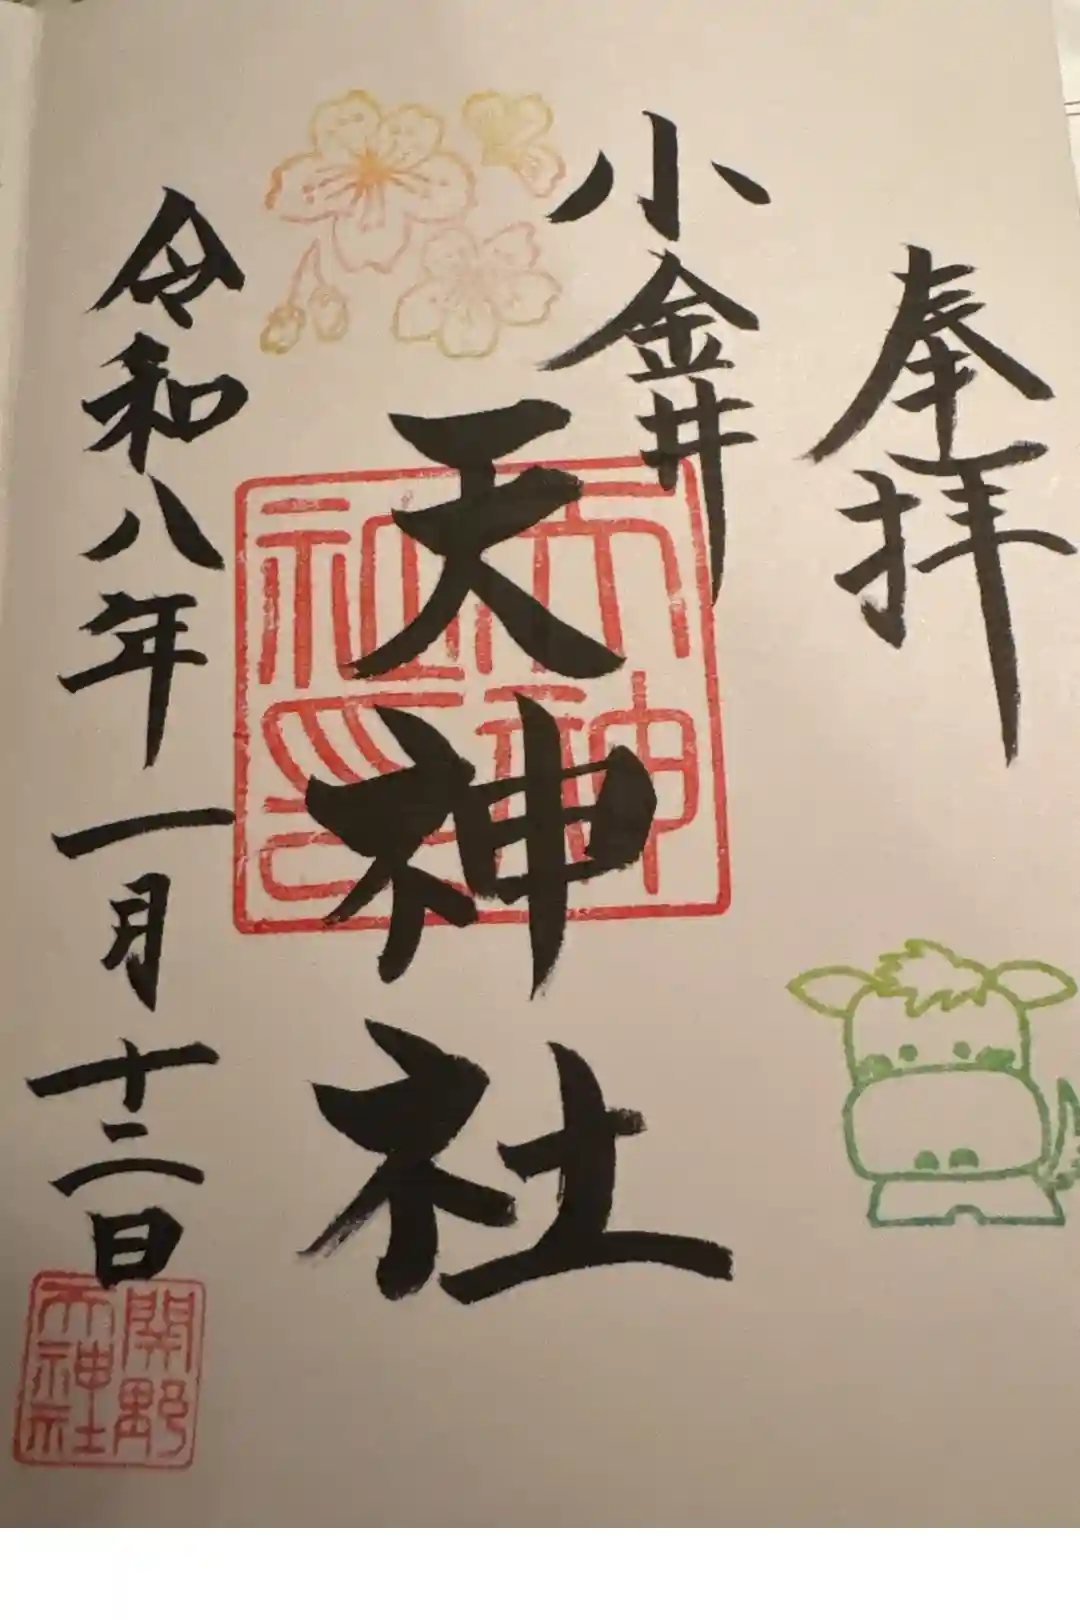 奉拝
小金井
天神社
令和八年一月十二日
天神社印
関野
天神社